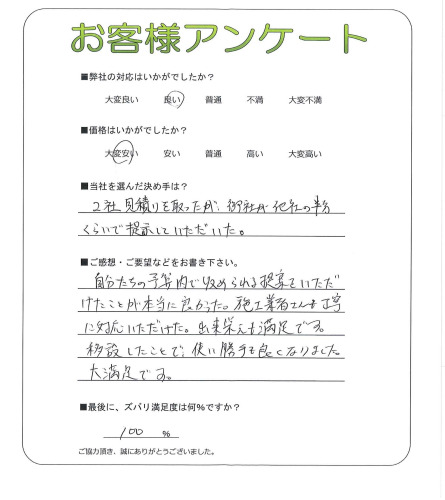 お客様アンケート
■弊社の対応はいかがでしたか？
大変良い 良い 普通 不満 大変不満
■価格はいかがでしたか？
大変安い 安い 普通 高い 大変高い
■当社を選んだ決め手は？
2社見積りを取ったが、御社が他社の半分
くらいで提示していただいた。
■ご感想・ご要望などをお書き下さい。
自分たちの予算内で収められる提案をいただ
けたことが本当に良かった。施工業者さんも丁寧
に対応いただけた。出来栄えも満足です。
移設したことで、使い勝手も良くなりました。
大満足です。
■最後に、ズバリ満足度は何%ですか？
100 %
ご協力頂き、誠にありがとうございました。